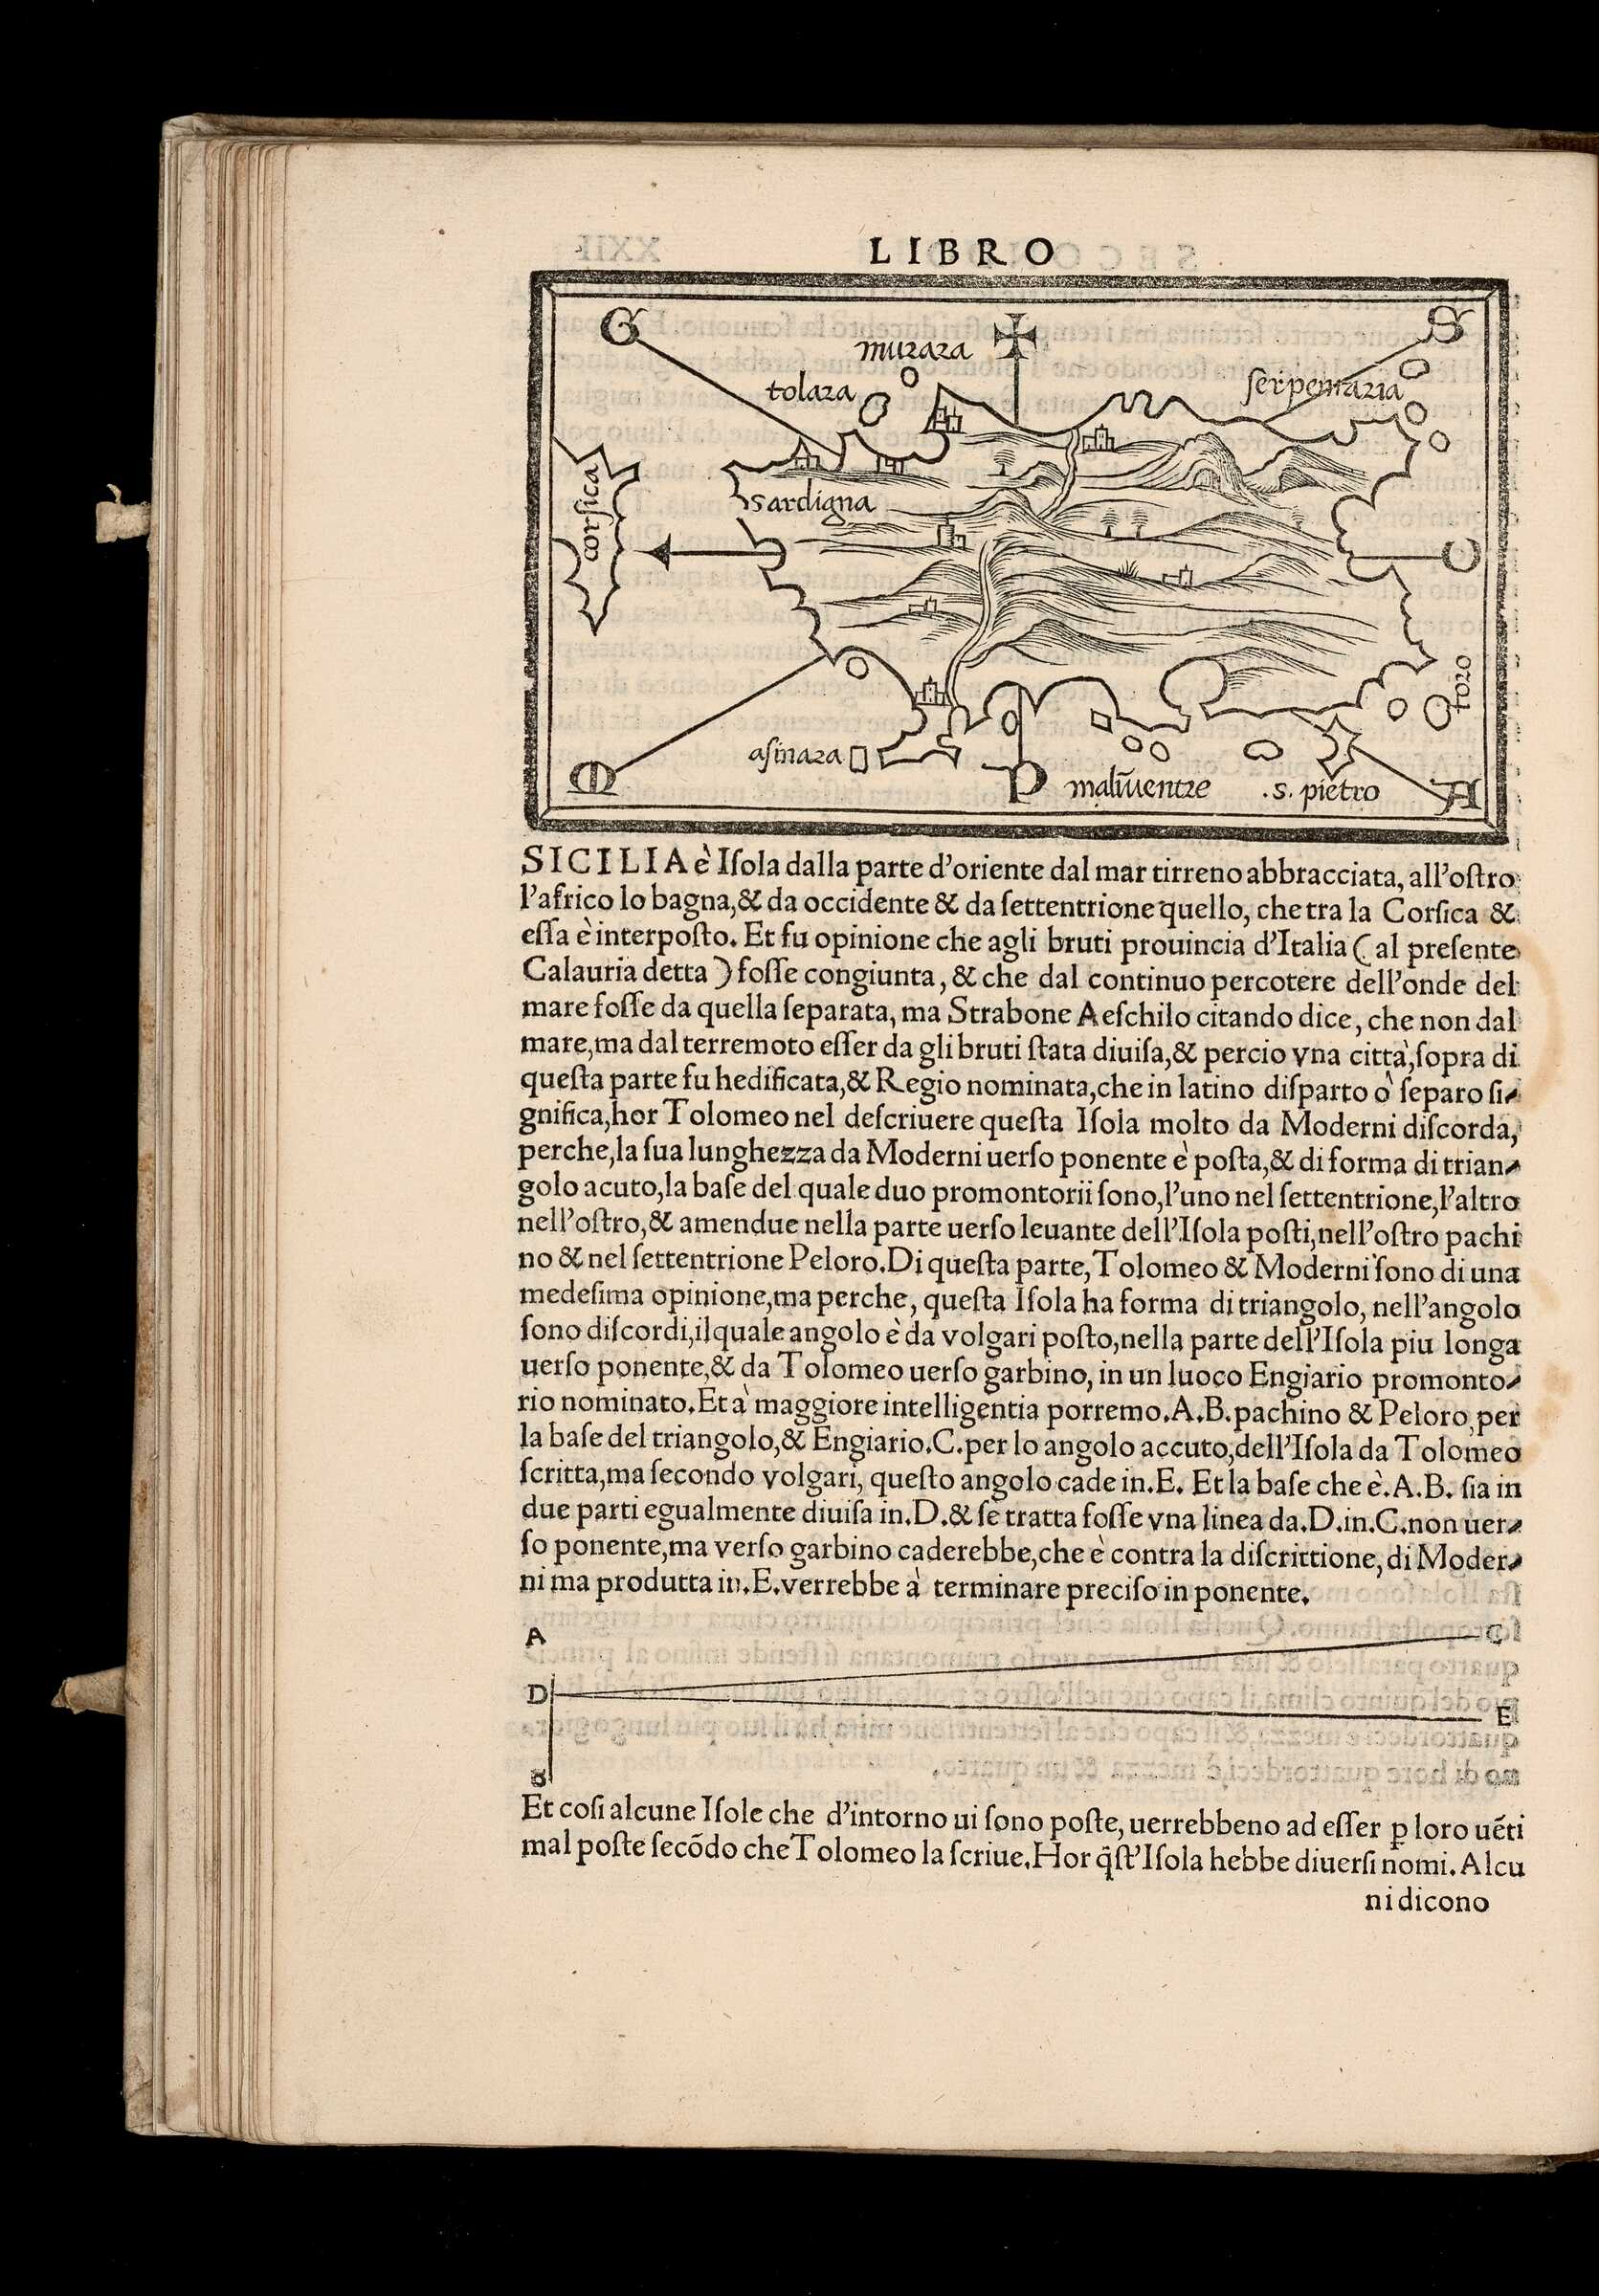 LIBRO
G
S
murara
tolara
serpentaria
corsica
sardigna
C
toro
asinara
M
P
maluventre
.s. pietro
A
SICILIA è Iſola dalla parte d'oriente dal mar tirreno abbracciata, all'oſtro
l'africo lo bagna,& da occidente & da ſettentrione quello, che tra la Corſica &
eſſa è interpoſto. Et fu opinione che agli bruti prouincia d'Italia ( al preſente
Calauria detta ) foſſe congiunta, & che dal continuo percotere dell'onde del
mare foſſe da quella ſeparata, ma Strabone Aeſchilo citando dice, che non dal
mare,ma dal terremoto eſſer da gli bruti ſtata diuiſa,& percio vna città,ſopra di
queſta parte fu hedificata,& Regio nominata,che in latino diſparto ò ſeparo ſi-
gnifica,hor Tolomeo nel deſcriuere queſta Iſola molto da Moderni diſcorda,
perche,la ſua lunghezza da Moderni uerſo ponente è poſta,& di forma di trian-
golo acuto,la baſe del quale duo promontorii ſono,l'uno nel ſettentrione,l'altro
nell'oſtro,& amendue nella parte uerſo leuante dell'Iſola poſti,nell'oſtro pachi
no & nel ſettentrione Peloro.Di queſta parte,Tolomeo & Moderni ſono di una
medeſima opinione,ma perche, queſta Iſola ha forma di triangolo, nell'angolo
ſono diſcordi,ilquale angolo è da volgari poſto,nella parte dell'Iſola piu longa
uerſo ponente,& da Tolomeo uerſo garbino, in un luoco Engiario promonto-
rio nominato.Et à maggiore intelligentia porremo.A.B.pachino & Peloro per
la baſe del triangolo,& Engiario.C.per lo angolo accuto,dell'Iſola da Tolomeo
ſcritta,ma ſecondo volgari, queſto angolo cade in.E. Et la baſe che è.A.B. ſia in
due parti egualmente diuiſa in.D.& ſe tratta foſſe vna linea da.D.in.C.non uer-
ſo ponente,ma verſo garbino caderebbe,che è contra la diſcrittione, di Moder-
ni ma produtta in.E.verrebbe à terminare preciſo in ponente.
A
C
D
E
B
Et coſi alcune Iſole che d'intorno ui ſono poſte, uerrebbeno ad eſſer ꝑ loro uẽti
mal poſte ſecõdo che Tolomeo la ſcriue.Hor q̃ſt'Iſola hebbe diuerſi nomi. Alcu
ni dicono